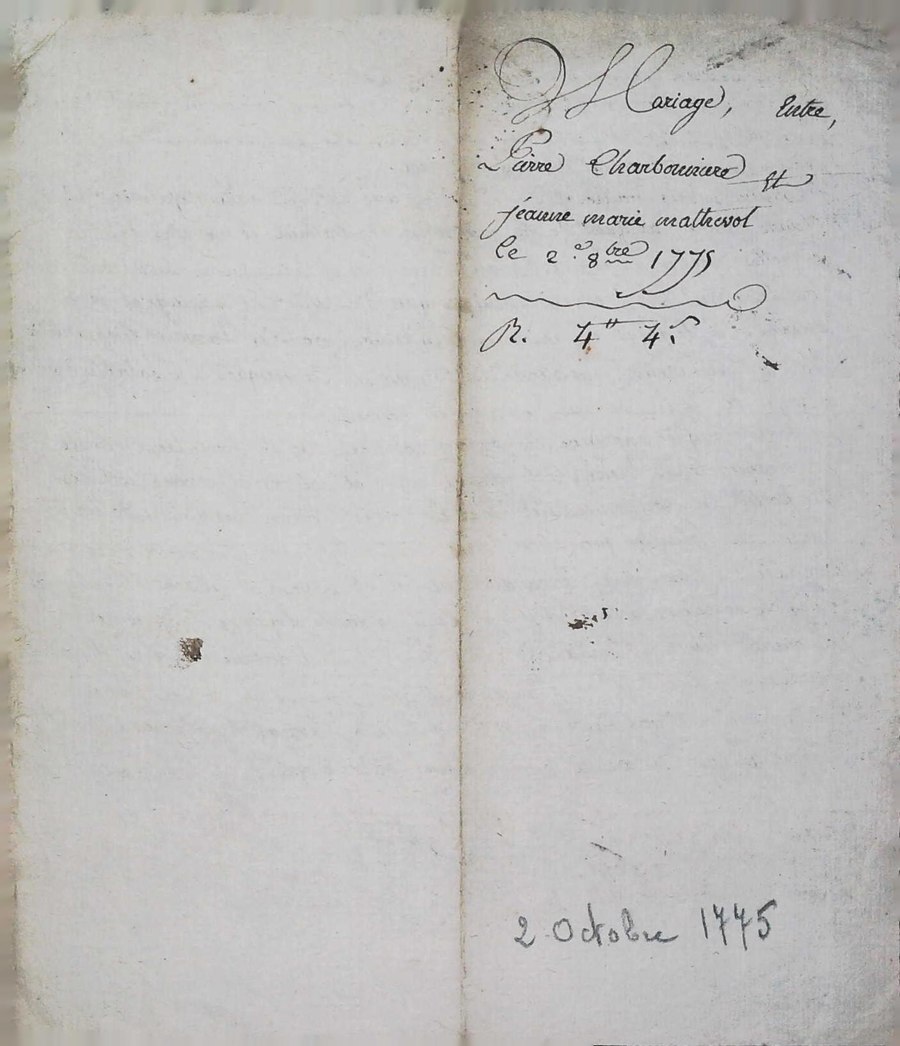 Mariage, Entre,
Pierre Charbonniere et
jeanne marie mathevot
le 2e. 8bre 1775
R. 4tt 4s.
2 Octobre 1775